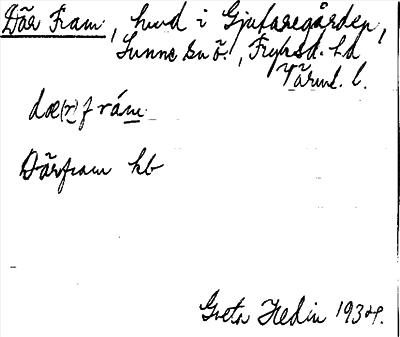 Där Fram, hmd i Gjutaregården,
Sunne sn ö., Fryksd. hd
Värml. l.
dæ(r) frám
Därfram kb
Greta Hedin 1934.